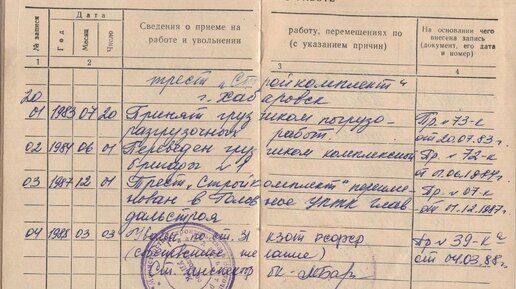 О РАБОТЕ
№ записи
Дата
Год
Месяц
Число
Сведения о приеме на работу и увольнении
работу, перемещениях по (с указанием причин)
На основании чего внесена запись (документ, его дата и номер)
1 2 3 4
трест „Стройкомплект“
20 г. Хабаровск
01 1983 07 20 Принят грузчиком погрузо- Пр. № 73-к
разгрузочных работ. от 20.07.83г.
02 1984 06 01 Переведен грузчиком комплексной Пр. № 72-к
бригады № 1 от 01.06.1984г.
03 1987 12 01 Трест „Стройкомплект“ переиме- Пр. № 07-к
нован в Головное УПТК Глав- от 01.12.1987.
дальстроя
04 1988 03 03 Уволен по ст. 31 КЗОТ РСФСР Пр № 39-к
(собственное желание) от 04.03.88г.
Ст. инспектор ОК